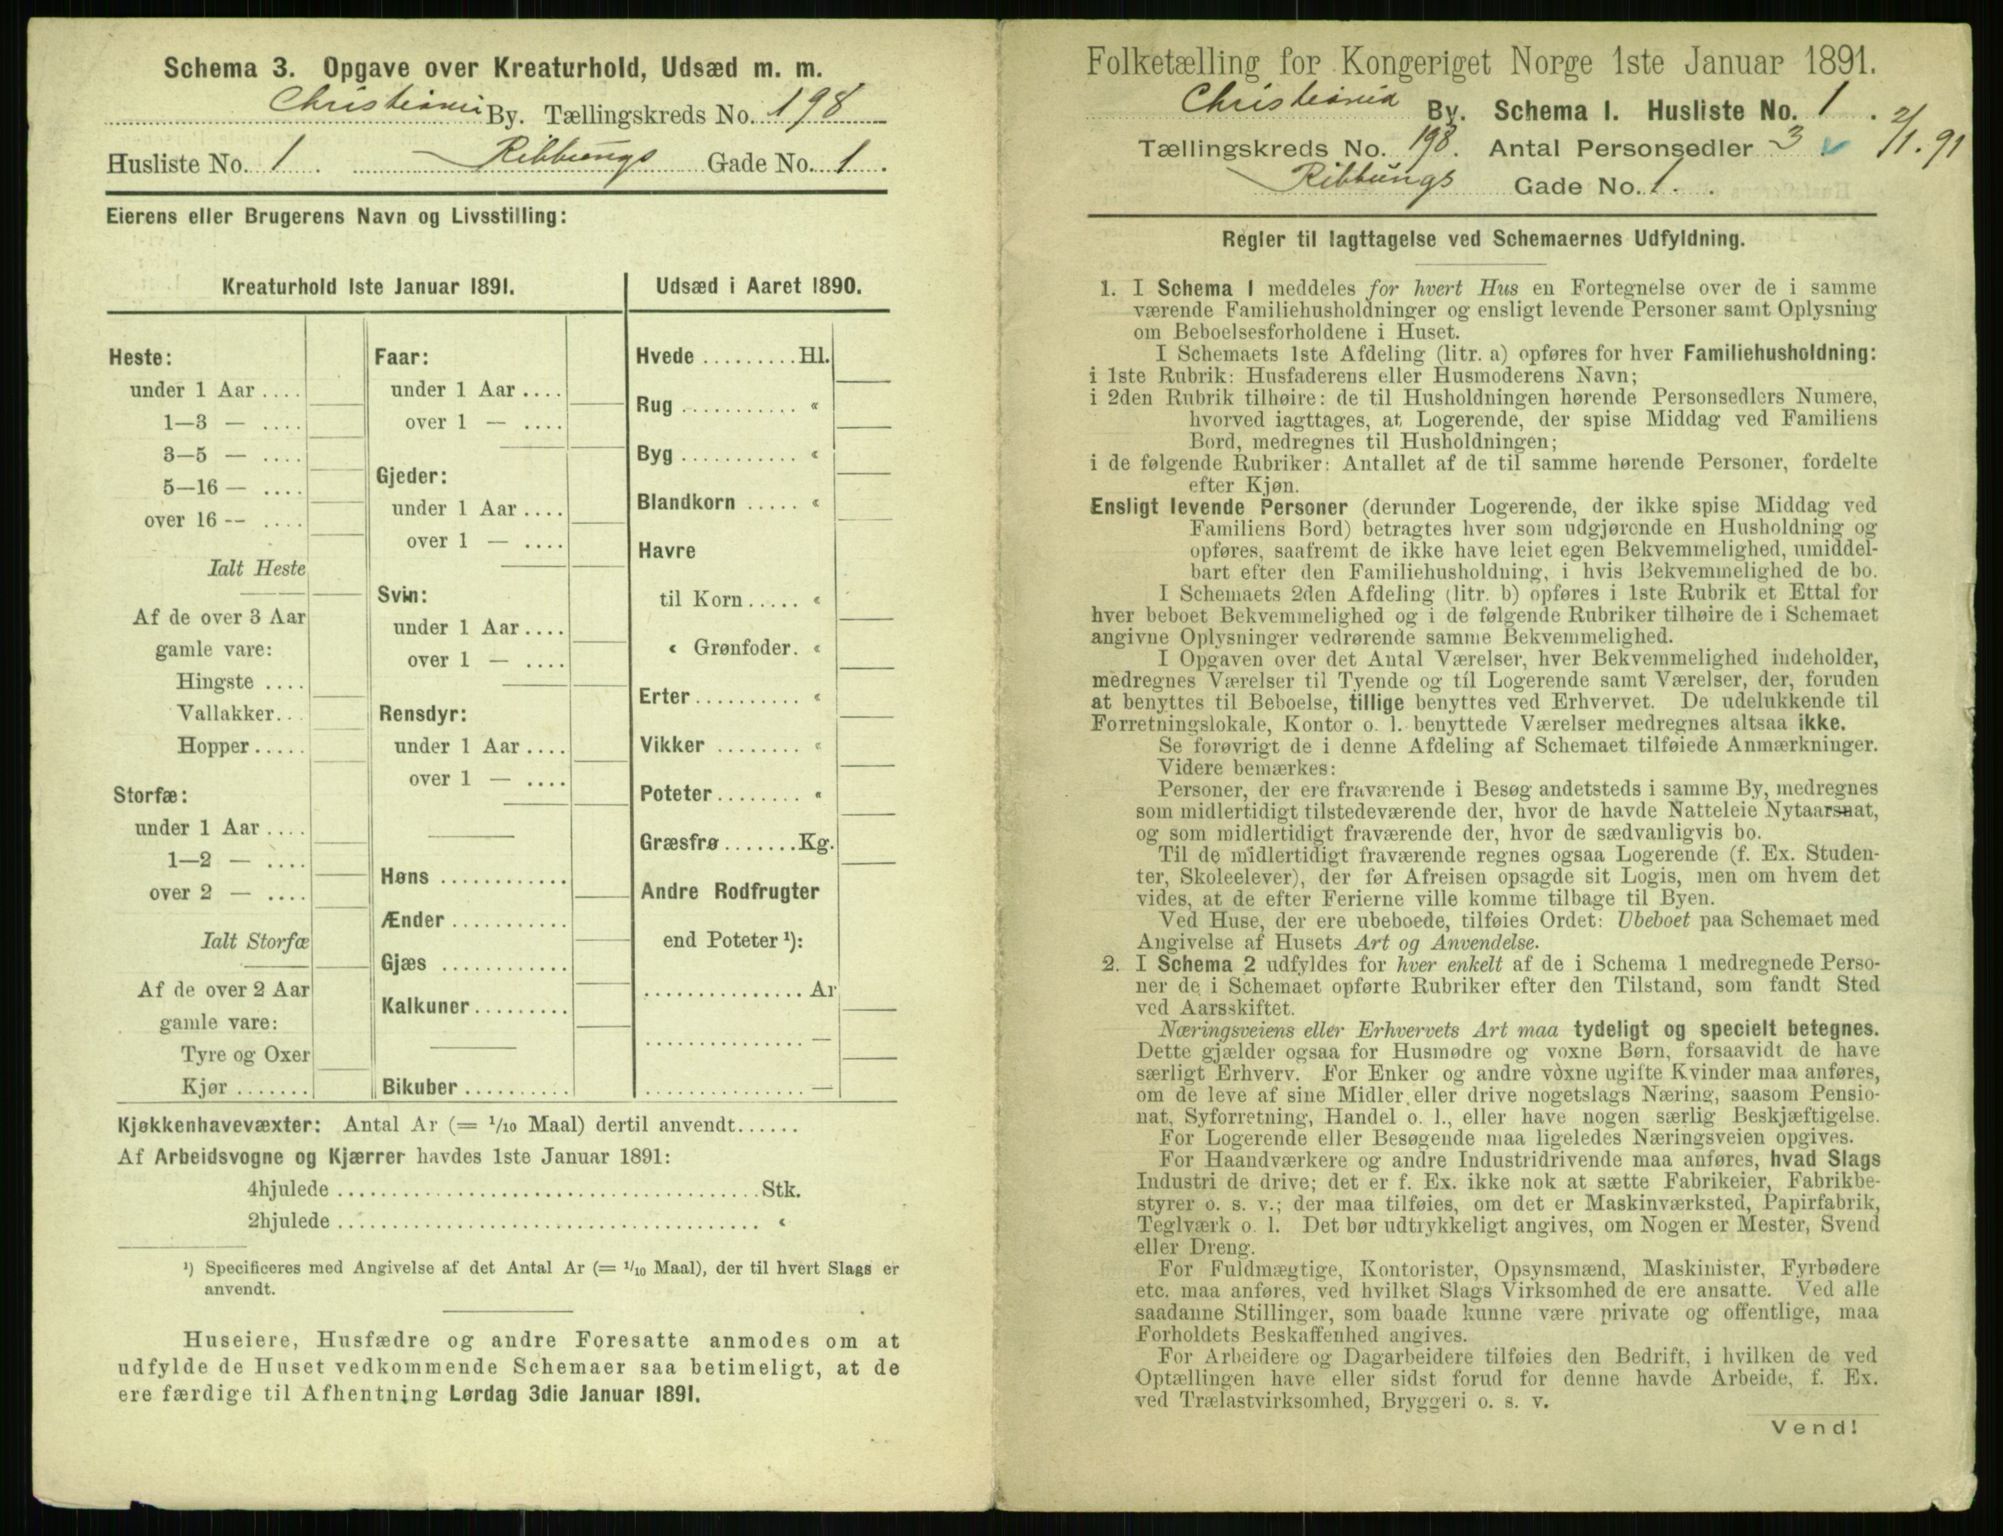 Schema 3. Opgave over Kreaturhold, Udsæd m. m.
Christiania By. Tællingskreds No. 198
Husliste No. 1. Ribbungs Gade No. 1.
Eierens eller Brugerens Navn og Livsstilling:
Kreaturhold 1ste Januar 1891.
Heste:
under 1 Aar ....
1—3 — ....
3—5 — ....
5—16 — ....
over 16 -- ....
Ialt Heste
Af de over 3 Aar
gamle vare:
Hingste ....
Vallakker...
Hopper.....
Storfæ:
under 1 Aar ....
1—2 — ....
over 2 — ....
Ialt Storfæ
Af de over 2 Aar
gamle vare:
Tyre og Oxer
Kjør .......
Faar:
under 1 Aar ....
over 1 — ....
Gjeder:
under 1 Aar ....
over 1 — ....
Svin:
under 1 Aar....
over 1 — ....
Rensdyr:
under 1 Aar ....
over 1 — ....
Høns ............
Ænder ...........
Gjæs ............
Kalkuner.........
Bikuber ..........
Udsæd i Aaret 1890.
Hvede .........Hl.
Rug ........... «
Byg ........... «
Blandkorn ..... «
Havre
til Korn..... «
« Grønfoder. «
Erter.......... «
Vikker ........ «
Poteter........ «
Græsfrø .......Kg.
Andre Rodfrugter
end Poteter ¹):
............... Ar
............... —
............... —
Kjøkkenhavevæxter: Antal Ar (= 1/10 Maal) dertil anvendt......
Af Arbeidsvogne og Kjærrer havdes 1ste Januar 1891:
4hjulede ........................................Stk.
2hjulede ........................................ «
¹) Specificeres med Angivelse af det Antal Ar (= 1/10 Maal), der til hvert Slags er
anvendt.
Huseiere, Husfædre og andre Foresatte anmodes om at
udfylde de Huset vedkommende Schemaer saa betimeligt, at de
ere færdige til Afhentning Lørdag 3die Januar 1891.
Folketælling for Kongeriget Norge 1ste Januar 1891.
Christiania By. Schema I. Husliste No. 1.
Tællingskreds No. 198. Antal Personsedler 3. 2/1. 91
Ribbungs Gade No. 1.
Regler til Iagttagelse ved Schemaernes Udfyldning.
1. I Schema I meddeles for hvert Hus en Fortegnelse over de i samme
værende Familiehusholdninger og ensligt levende Personer samt Oplysning
om Beboelsesforholdene i Huset.
I Schemaets 1ste Afdeling (litr. a) opføres for hver Familiehusholdning:
i 1ste Rubrik: Husfaderens eller Husmoderens Navn;
i 2den Rubrik tilhøire: de til Husholdningen hørende Personsedlers Numere,
hvorved iagttages, at Logerende, der spise Middag ved Familiens
Bord, medregnes til Husholdningen;
i de følgende Rubriker: Antallet af de til samme hørende Personer, fordelte
efter Kjøn.
Ensligt levende Personer (derunder Logerende, der ikke spise Middag ved
Familiens Bord) betragtes hver som udgjørende en Husholdning og
opføres, saafremt de ikke have leiet egen Bekvemmelighed, umiddel-
bart efter den Familiehusholdning, i hvis Bekvemmelighed de bo.
I Schemaets 2den Afdeling (litr. b) opføres i 1ste Rubrik et Ettal for
hver beboet Bekvemmelighed og i de følgende Rubriker tilhøire de i Schemaet
angivne Oplysninger vedrørende samme Bekvemmelighed.
I Opgaven over det Antal Værelser, hver Bekvemmelighed indeholder,
medregnes Værelser til Tyende og til Logerende samt Værelser, der, foruden
at benyttes til Beboelse, tillige benyttes ved Erhvervet. De udelukkende til
Forretningslokale, Kontor o. l. benyttede Værelser medregnes altsaa ikke.
Se forøvrigt de i denne Afdeling af Schemaet tilføiede Anmærkninger.
Videre bemærkes:
Personer, der ere fraværende i Besøg andetsteds i samme By, medregnes
som midlertidigt tilstedeværende der, hvor de havde Natteleie Nytaarsnat,
og som midlertidigt fraværende der, hvor de sædvanligvis bo.
Til de midlertidigt fraværende regnes ogsaa Logerende (f. Ex. Studen-
ter, Skoleelever), der før Afreisen opsagde sit Logis, men om hvem det
vides, at de efter Ferierne ville komme tilbage til Byen.
Ved Huse, der ere ubeboede, tilføies Ordet: Ubeboet paa Schemaet med
Angivelse af Husets Art og Anvendelse.
2. I Schema 2 udfyldes for hver enkelt af de i Schema 1 medregnede Perso-
ner de i Schemaet opførte Rubriker efter den Tilstand, som fandt Sted
ved Aarsskiftet.
Næringsveiens eller Erhvervets Art maa tydeligt og specielt betegnes.
Dette gjælder ogsaa for Husmødre og voxne Børn, forsaavidt de have
særligt Erhverv. For Enker og andre voxne ugifte Kvinder maa anføres,
om de leve af sine Midler eller drive nogetslags Næring, saasom Pensio-
nat, Syforretning, Handel o. l., eller have nogen særlig Beskjæftigelse.
For Logerende eller Besøgende maa ligeledes Næringsveien opgives.
For Haandværkere og andre Industridrivende maa anføres, hvad Slags
Industri de drive; det er f. Ex. ikke nok at sætte Fabrikeier, Fabrikbe-
styrer o. s. v.; der maa tilføies, om det er Maskinværksted, Papirfabrik,
Teglværk o. l. Det bør udtrykkeligt angives, om Nogen er Mester, Svend
eller Dreng.
For Fuldmægtige, Kontorister, Opsynsmænd, Maskinister, Fyrbødere
etc. maa anføres, ved hvilket Slags Virksomhed de ere ansatte. Ved alle
saadanne Stillinger, som baade kunne være private og offentlige, maa
Forholdets Beskaffenhed angives.
For Arbeidere og Dagarbeidere tilføies den Bedrift, i hvilken de ved
Optællingen have eller sidst forud for denne havde Arbeide, f. Ex.
ved Trælastvirksomhed, Bryggeri o. s. v.
Vend!